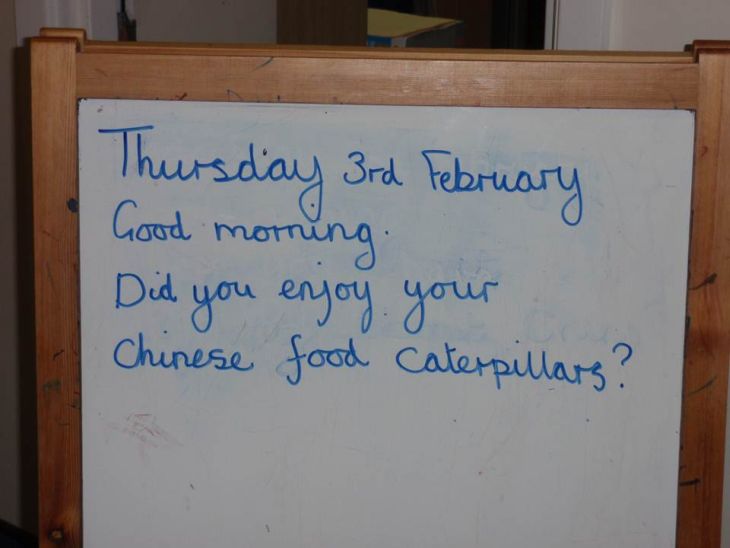 Thursday 3rd February
Good morning.
Did you enjoy your
Chinese food caterpillars?